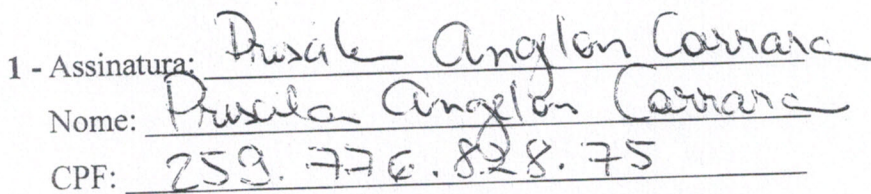 1 - Assinatura: Priscila Angelon Carrara
Nome: Priscila Angelon Carrara
CPF: 259.776.828.75